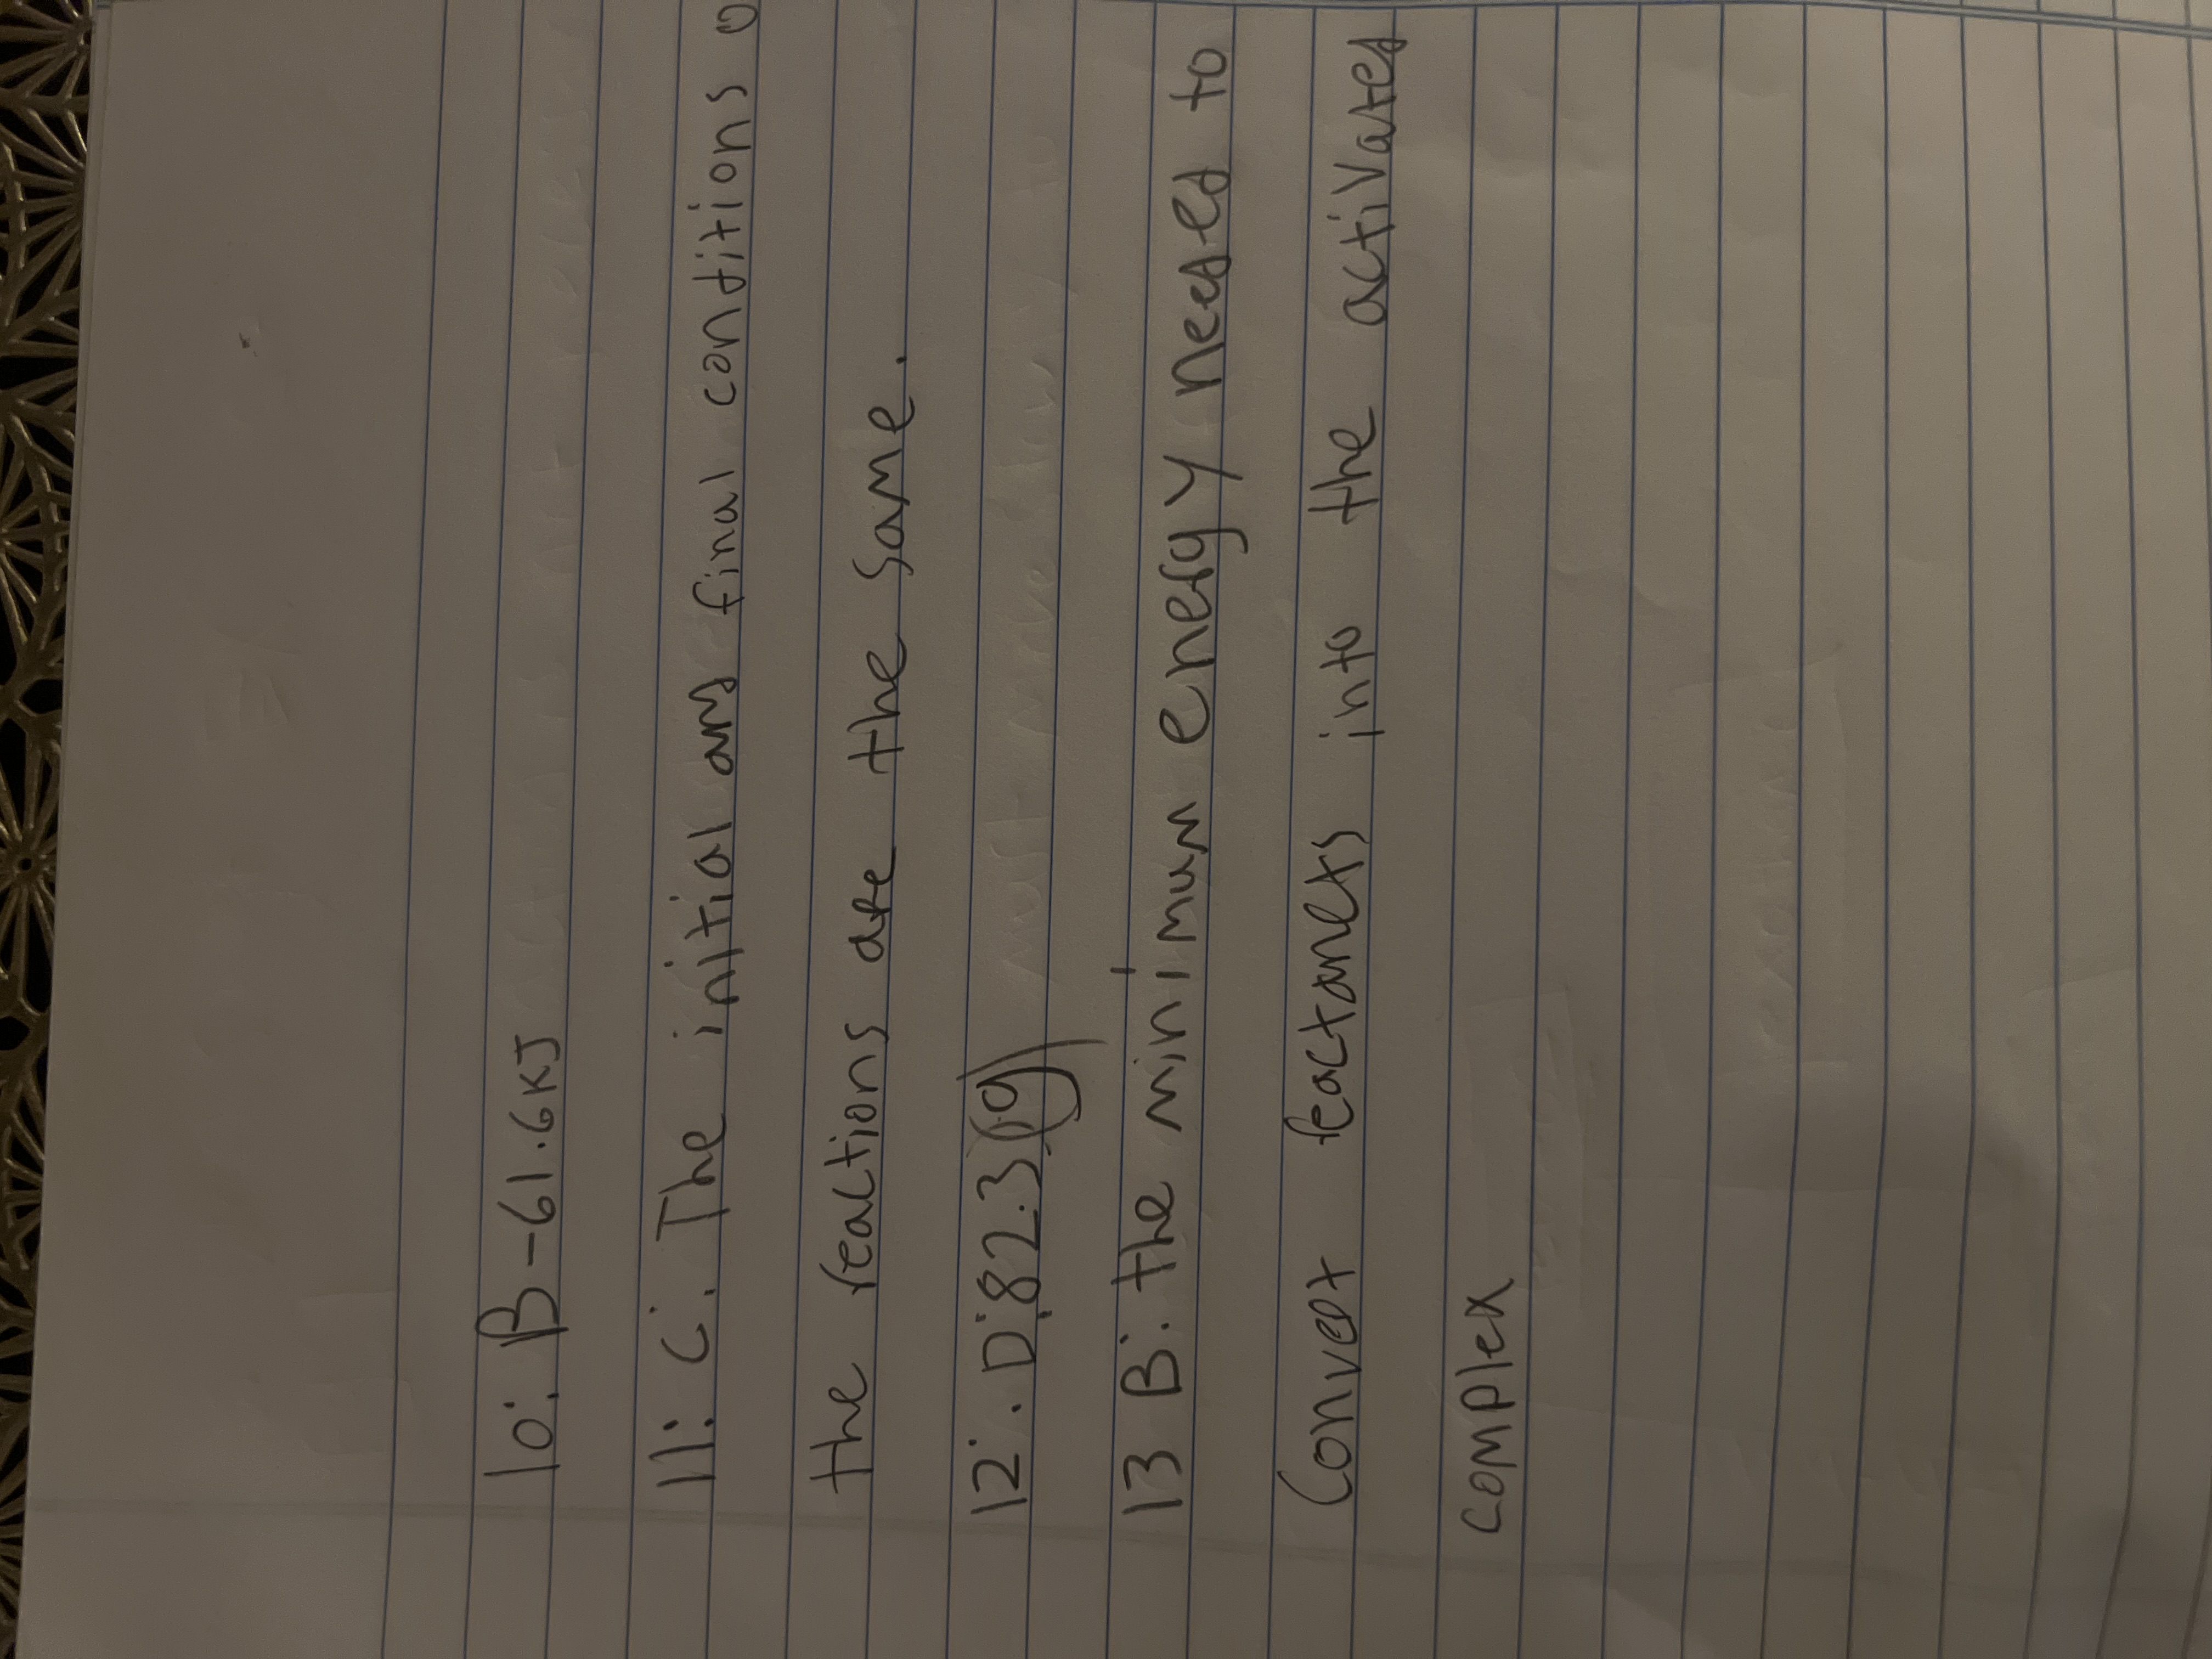 10. B -61.6KJ
11. C. The initial and final conditions o
the reactions are the same.
12. D. 82.3 (g)
13 B. the minimum energy needed to
Convert reactants into the activated
complex